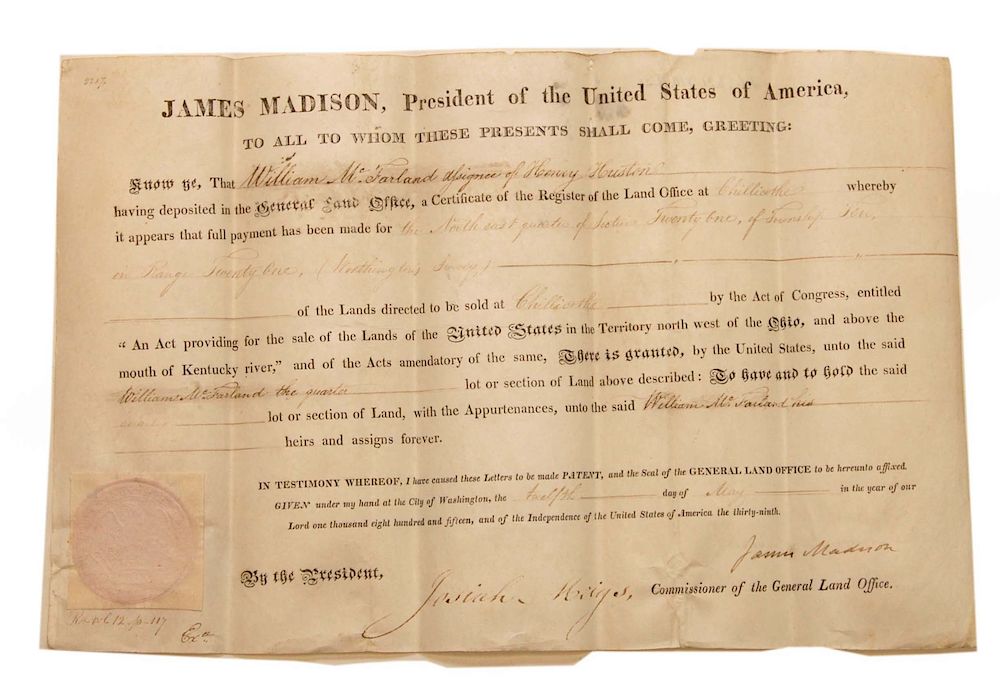 2217.
JAMES MADISON, President of the United States of America,
TO ALL TO WHOM THESE PRESENTS SHALL COME, GREETING:
Know ye, That William McFarland assignee of Henry Huston
having deposited in the General Land Office, a Certificate of the Register of the Land Office at Chillicothe whereby
it appears that full payment has been made for the North east quarter of Section Twenty One, of Township Ten,
in Range Twenty One, (Worthington's Survey,)
of the Lands directed to be sold at Chillicothe by the Act of Congress, entitled
“ An Act providing for the sale of the Lands of the United States in the Territory north west of the Ohio, and above the
mouth of Kentucky river,” and of the Acts amendatory of the same, There is granted, by the United States, unto the said
William McFarland the quarter lot or section of Land above described: To have and to hold the said
quarter lot or section of Land, with the Appurtenances, unto the said William McFarland his
heirs and assigns forever.
IN TESTIMONY WHEREOF, I have caused these Letters to be made PATENT, and the Seal of the GENERAL LAND OFFICE to be hereunto affixed.
GIVEN under my hand at the City of Washington, the twelfth day of May in the year of our
Lord one thousand eight hundred and fifteen, and of the Independence of the United States of America the thirty-ninth.
James Madison
By the President,
Josiah Meigs, Commissioner of the General Land Office.
vol 12 p 117
Exd